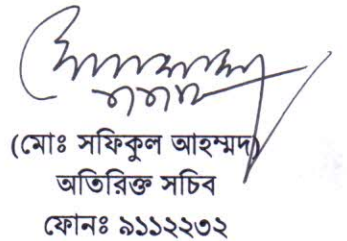 (মোঃ সফিকুল আহম্মদ)
অতিরিক্ত সচিব
ফোনঃ ৯১১২২৩২